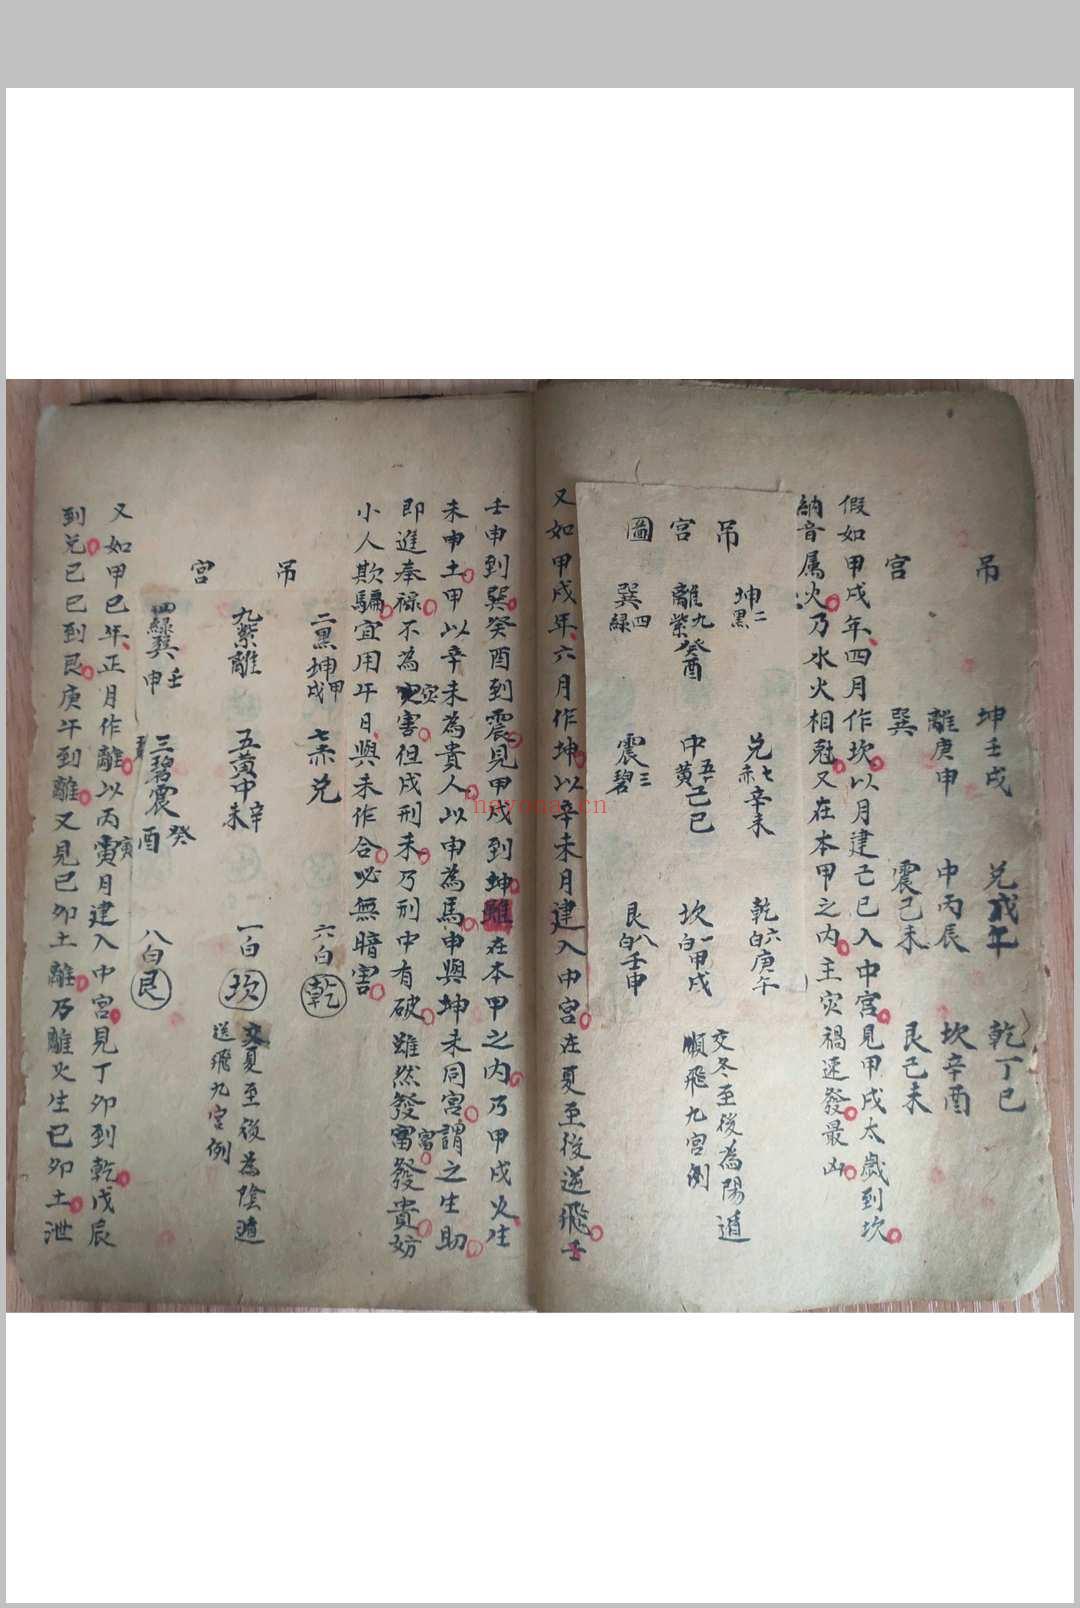 吊宮
坤壬戌 兌戊午 乾丁巳
離庚申 中丙辰 坎辛酉
巽 震己未 艮己未
假如甲戌年四月作坎以月建己巳入中宮見甲戌太歲到坎
納音属火乃水火相尅又在本甲之内主灾禍速發最凶
吊宮圖
坤二黑 兌七赤辛未 乾六白庚午
離九紫癸酉 中五黄己巳 坎一白甲戌
巽四綠 震三碧 艮八白壬申
交冬至後為陽遁
順飛九宮例
又如甲戌年六月作坤以辛未月建入中宮在夏至後逆飛壬
壬申到巽癸酉到震見甲戌到坤雖在本甲之内乃甲戌火生
未申土甲以辛未為貴人以申為馬申與坤未同宮謂之生助
即進奉禄不為灾害但戌刑未乃刑中有破雖然發富發貴妨
小人欺騙宜用午日與未作合必無暗害
吊宮
二黑坤甲戌 七赤兌 六白乾
九紫離 五黄中辛未 一白坎
四綠巽壬申 三碧震癸酉 八白艮
交夏至後為陰遁
逆飛九宮例
又如甲己年正月作離以丙寅月建入中宮見丁卯到乾戊辰
到兌己巳到艮庚午到離又見己卯土離乃離火生己卯土泄
hayona.cn